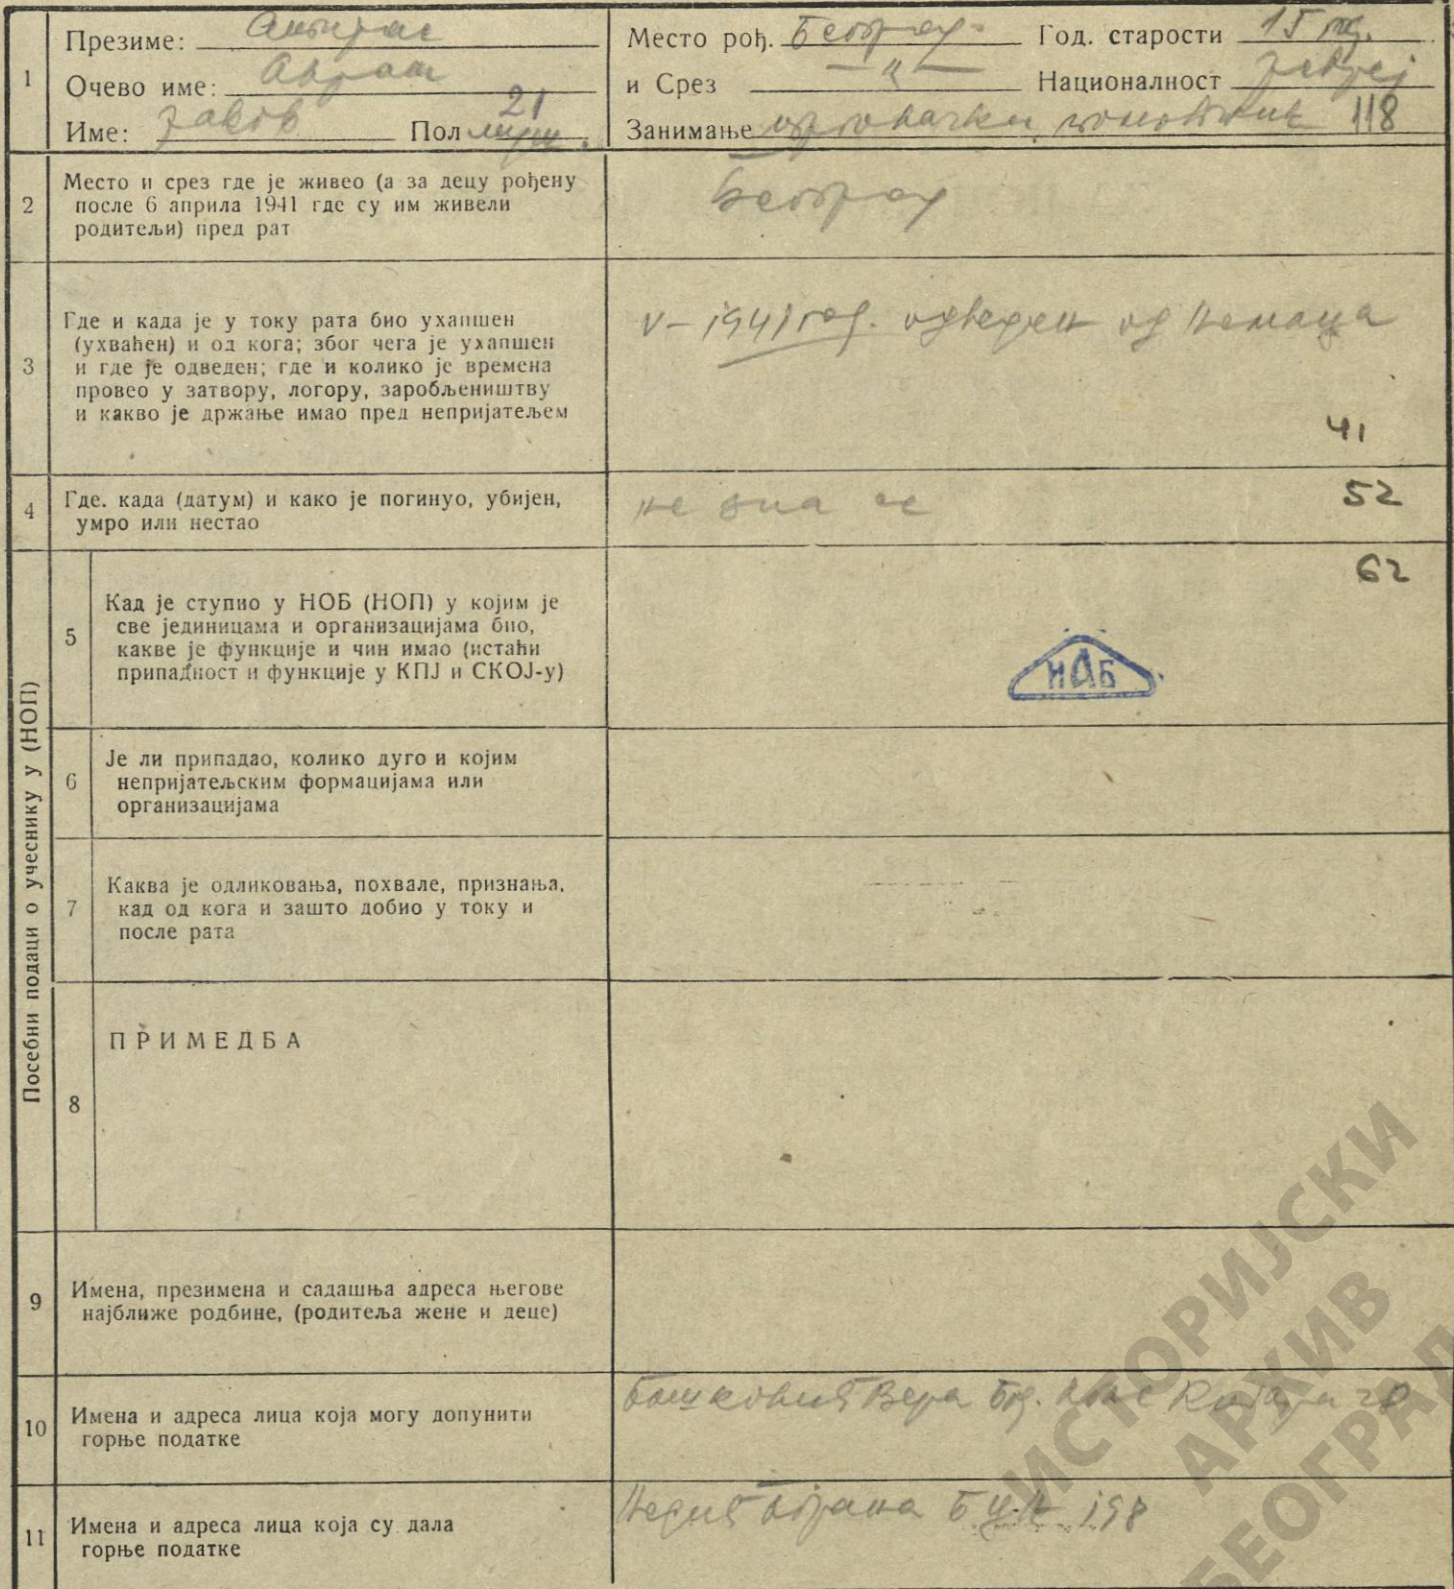 1
Презиме:
Очево име: Аврам
Име: Јаков Пол 21
Место рођ. Београд Год. старости 15 год.
и Срез —"— Националност Јевреј
Занимање трговачки помоћник 118
2
Место и срез где је живео (а за децу рођену
после 6 априла 1941 где су им живели
родитељи) пред рат
Београд
3
Где и када је у току рата био ухапшен
(ухваћен) и од кога; због чега је ухапшен
и где је одведен; где и колико је времена
провео у затвору, логору, заробљеништву
и какво је држање имао пред непријатељем
V-1941 год. одведен од Немаца
41
4
Где. када (датум) и како је погинуо, убијен,
умро или нестао
не зна се
52
Посебни подаци о учеснику у (НОП)
5
Кад је ступио у НОБ (НОП) у којим је
све јединицама и организацијама био,
какве је функције и чин имао (истаћи
припадност и функције у КПЈ и СКОЈ-у)
62
ИАБ
6
Је ли припадао, колико дуго и којим
непријатељским формацијама или
организацијама
7
Каква је одликовања, похвале, признања,
кад од кога и зашто добио у току и
после рата
8
ПРИМЕДБА
9
Имена, презимена и садашња адреса његове
најближе родбине, (родитеља жене и деце)
10
Имена и адреса лица која могу допунити
горње податке
Бошковић Вера Бгд. 20
11
Имена и адреса лица која су дала
горње податке
Недић 198
ИСТОРИЈСКИ
АРХИВ
БЕОГРАД